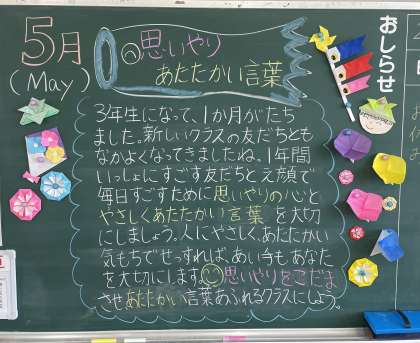 5月
(May)
思いやり
あたたかい言葉
おしらせ
3年生になって、1か月がたち
ました。新しいクラスの友だちとも
なかよくなってきましたね。1年間
いっしょにすごす友だちとえ顔で
毎日すごすために思いやりの心と
やさしくあたたかい言葉を大切
にしましょう。人にやさしく、あたたかい
気もちでせっすれば、あい手もあなた
を大切にします。思いやりをこだま
させあたたかい言葉あふれるクラスにしよう。